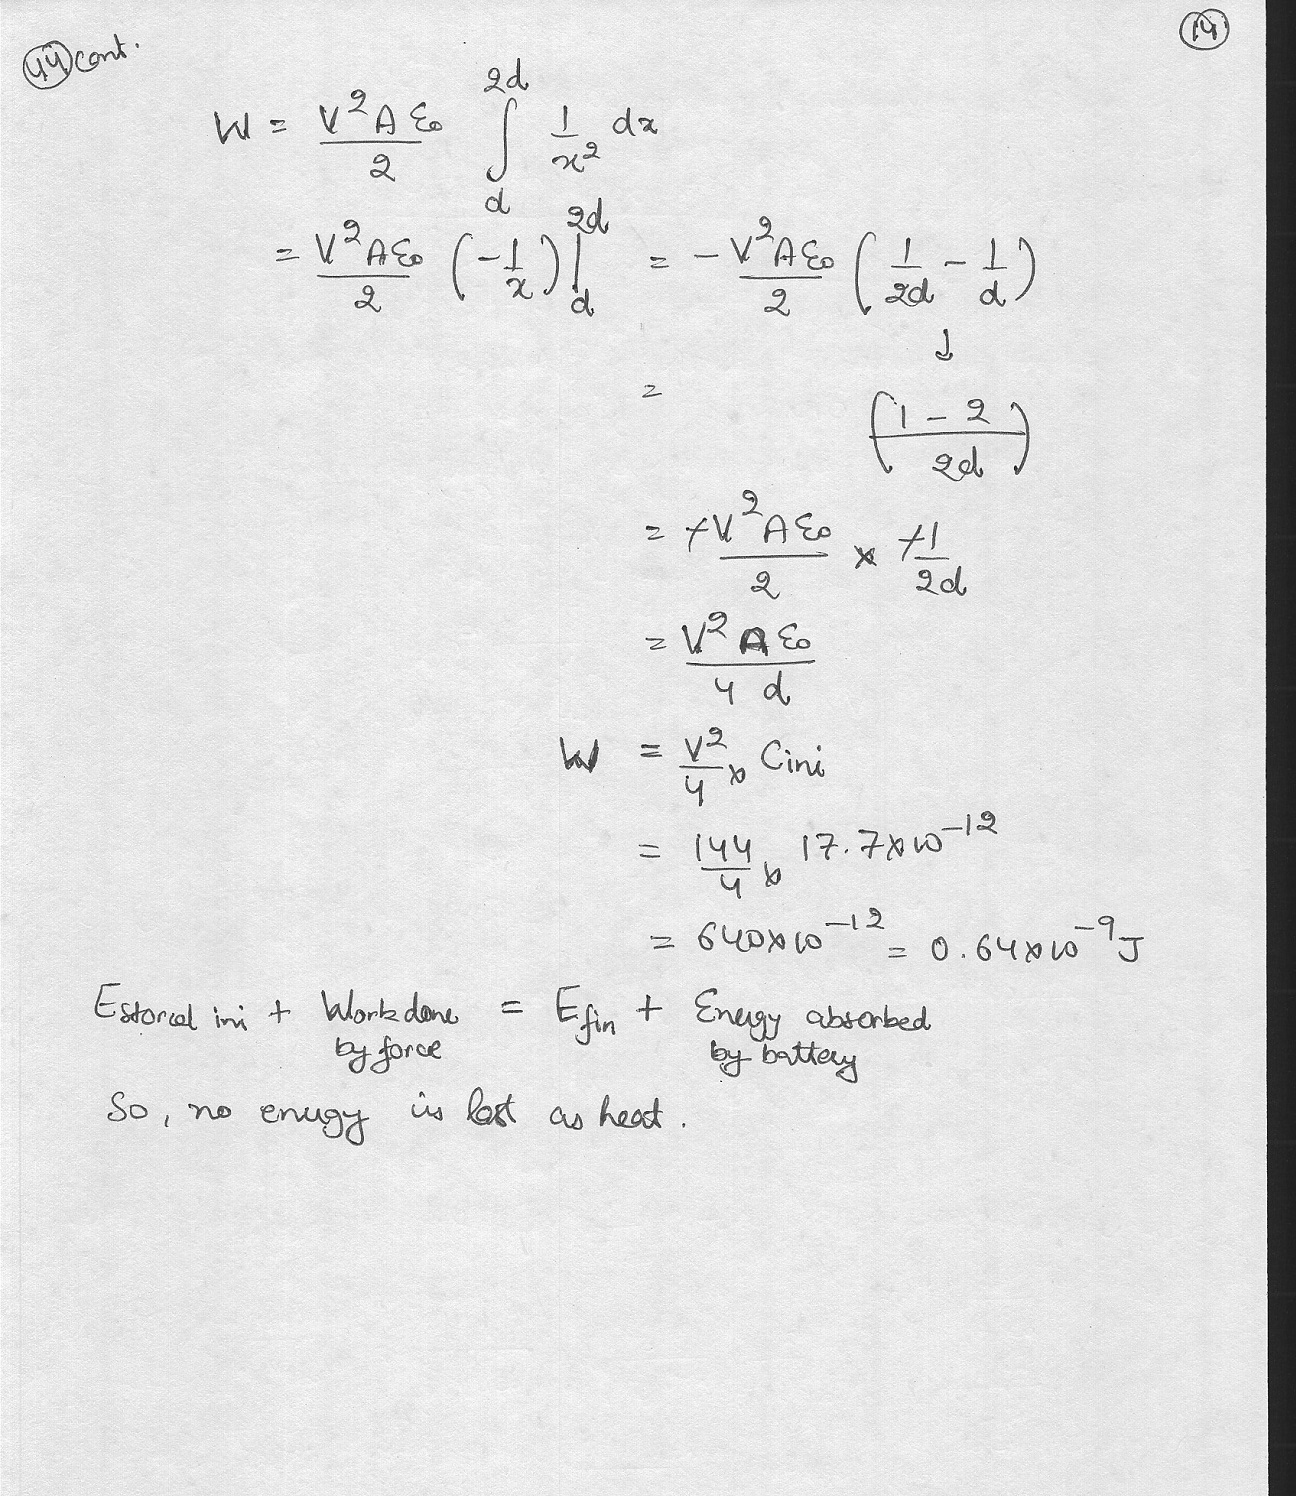 44 cont.
14
W = V²Aε₀/2 ∫_d^2d 1/x² dx
= V²Aε₀/2 (-1/x)|_d^2d = - V²Aε₀/2 (1/2d - 1/d)
↓
= ((1 - 2)/2d)
= -V²Aε₀/2 × -1/2d
= V² A ε₀/4 d
W = V²/4 × Cini
= 144/4 × 17.7×10⁻¹²
= 640×10⁻¹² = 0.64×10⁻⁹ J
Estored ini + Work done by force = Efin + Energy absorbed by battery
So, no energy is lost as heat.